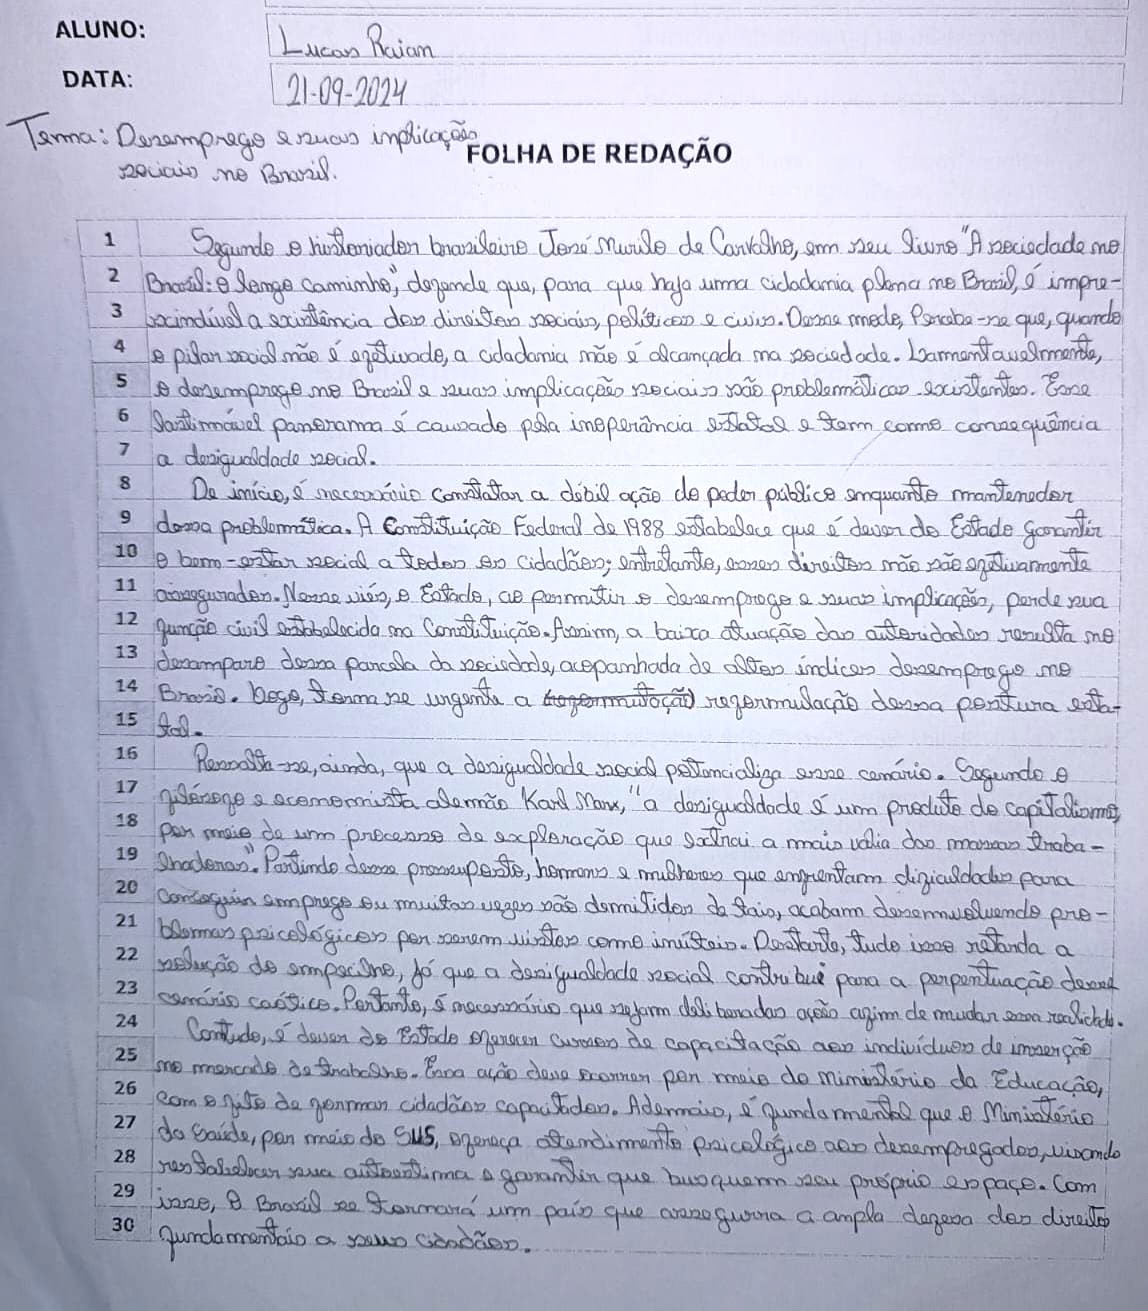 ALUNO: Lucas Raian
DATA: 21-09-2024
Tema: Desemprego e suas implicações
sociais no Brasil.
FOLHA DE REDAÇÃO
1 Segundo o historiador brasileiro José Murilo de Carvalho, em seu livro "A sociedade no
2 Brasil: o longo caminho", defende que, para que haja uma cidadania plena no Brasil, é impre-
3 scindível a existência dos direitos sociais, políticos e civis. Dessa modo, Percebe-se que, quando
4 o pilar social não é efetivado, a cidadania não é alcançada na sociedade. Lamentavelmente,
5 o desemprego no Brasil e suas implicações sociais são problemáticas existentes. Esse
6 lastimável panorama é causado pela inoperância estatal e tem como consequência
7 a desigualdade social.
8 De início, é necessário constatar a débil ação do poder público enquanto mantenedor
9 dessa problemática. A Constituição Federal de 1988 estabelece que é dever do Estado garantir
10 o bem-estar social a todos os cidadãos; entretanto, esses direitos não são efetivamente
11 assegurados. Nesse viés, o Estado, ao permitir o desemprego e suas implicações, perde sua
12 função civil estabelecida na Constituição. Assim, a baixa atuação das autoridades resulta no
13 desamparo dessa parcela da sociedade, acopanhada de altos índices desemprego no
14 Brasil. Logo, torna se urgente a reformulação dessa postura esta-
15 tal.
16 Ressalta-se, ainda, que a desigualdade social potencializa esse cenário. Segundo o
17 filósofo e economista alemão Karl Marx, "a desigualdade é um produto do capitalismo,
18 por meio de um processo de exploração que extrai a mais valia das massas traba-
19 lhadoras". Partindo desse pressuposto, homens e mulheres que enfrentam dificuldades para
20 conseguir emprego ou muitas vezes são demitidos de tais, acabam desenvolvendo pro-
21 blemas psicológicos por serem vistos como inúteis. Destarte, tudo isso retarda a
22 solução do empecilho, já que a desigualdade social contribui para a perpentuação desse
23 cenário caótico. Portanto, é necessário que sejam deliberadas ações afim de mudar essa realidade.
24 Contudo, é dever do Estado oferecer cursos de capacitação aos indivíduos de imserção
25 no mercado de trabalho. Essa ação deve ocorrer por meio do ministério da Educação,
26 com o fito de formar cidadãos capacitados. Ademais, é fundamental que o Ministério
27 da Saúde, por meio do SUS, ofereça atendimento psicológico aos desempregados, visando
28 restabelecer sua autoestima e garantir que busquem seu próprio espaço. Com
29 isso, o Brasil se tornará um país que assegurra a ampla defesa dos direitos
30 fundamentais a seus cidadãos.